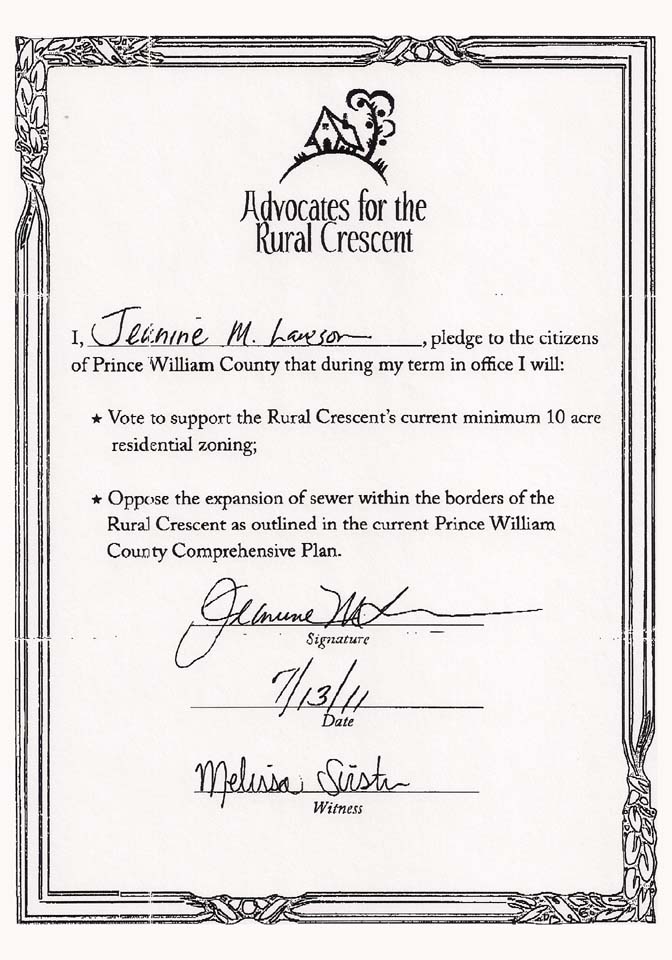 Advocates for the
Rural Crescent
I, Jeanine M. Lawson, pledge to the citizens
of Prince William County that during my term in office I will:
★ Vote to support the Rural Crescent's current minimum 10 acre
residential zoning;
★ Oppose the expansion of sewer within the borders of the
Rural Crescent as outlined in the current Prince William
County Comprehensive Plan.
Jeanine M L
Signature
7/13/11
Date
Melissa
Witness